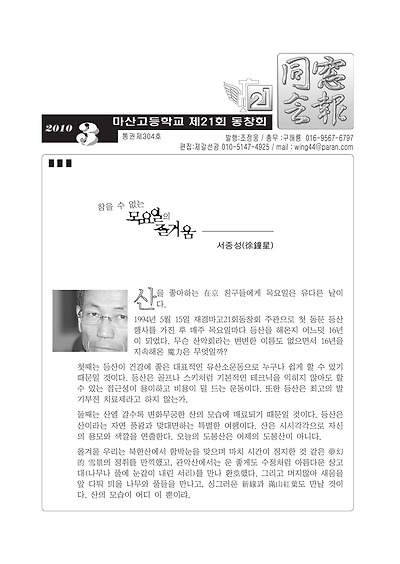 同窓會報
21
2010 3
마산고등학교 제21회 동창회
통권제304호
발행:조정웅 / 총무 :구해룡 016-9567-6797
편집:제갈선광 010-5147-4925 / mail : wing44@paran.com
참을 수 없는
목요일의
즐거움
서종성(徐鐘星)
산을 좋아하는 在京 친구들에게 목요일은 유다른 날이
다.
1994년 5월 15일 재경마고21회동창회 주관으로 첫 동문 등산
행사를 가진 후 매주 목요일마다 등산을 해온지 어느덧 16년
이 되었다. 무슨 산악회라는 변변한 이름도 없으면서 16년을
지속해온 魔力은 무엇일까?
첫째는 등산이 건강에 좋은 대표적인 유산소운동으로 누구나 쉽게 할 수 있기
때문일 것이다. 등산은 골프나 스키처럼 기본적인 테크닉을 익히지 않아도 할
수 있는 접근성이 용이하고 비용이 덜 드는 운동이다. 또한 등산은 최고의 발
기부전 치료제라고 하지 않는가.
둘째는 산엘 갈수록 변화무궁한 산의 모습에 매료되기 때문일 것이다. 등산은
산이라는 자연 풍광과 맞대면하는 특별한 여행이다. 산은 시시각각으로 자신
의 용모와 색깔을 연출한다. 오늘의 도봉산은 어제의 도봉산이 아니다.
올겨울 우리는 북한산에서 함박눈을 맞으며 마치 시간이 정지한 것 같은 夢幻
的 雪景의 정취를 만끽했고, 관악산에서는 운 좋게도 수정처럼 아름다운 상고
대(나무나 풀에 눈같이 내린 서리)를 만나 환호했다. 그리고 머지않아 새움을
앞 다퉈 틔울 나무와 풀들을 만나고, 싱그러운 新綠과 滿山紅葉도 만날 것이
다. 산의 모습이 어디 이 뿐이랴.